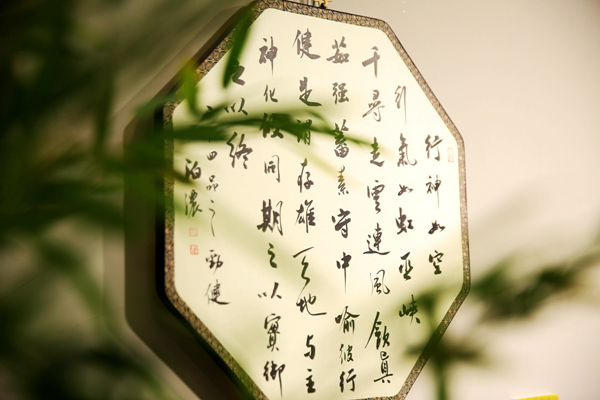 行神如空
行氣如虹巫峽
千尋走雲連風飲真
茹强蓄素守中喻彼行
健是謂存雄天地与立
神化攸同期之以實御
之以終
四品之勁健
泊濃